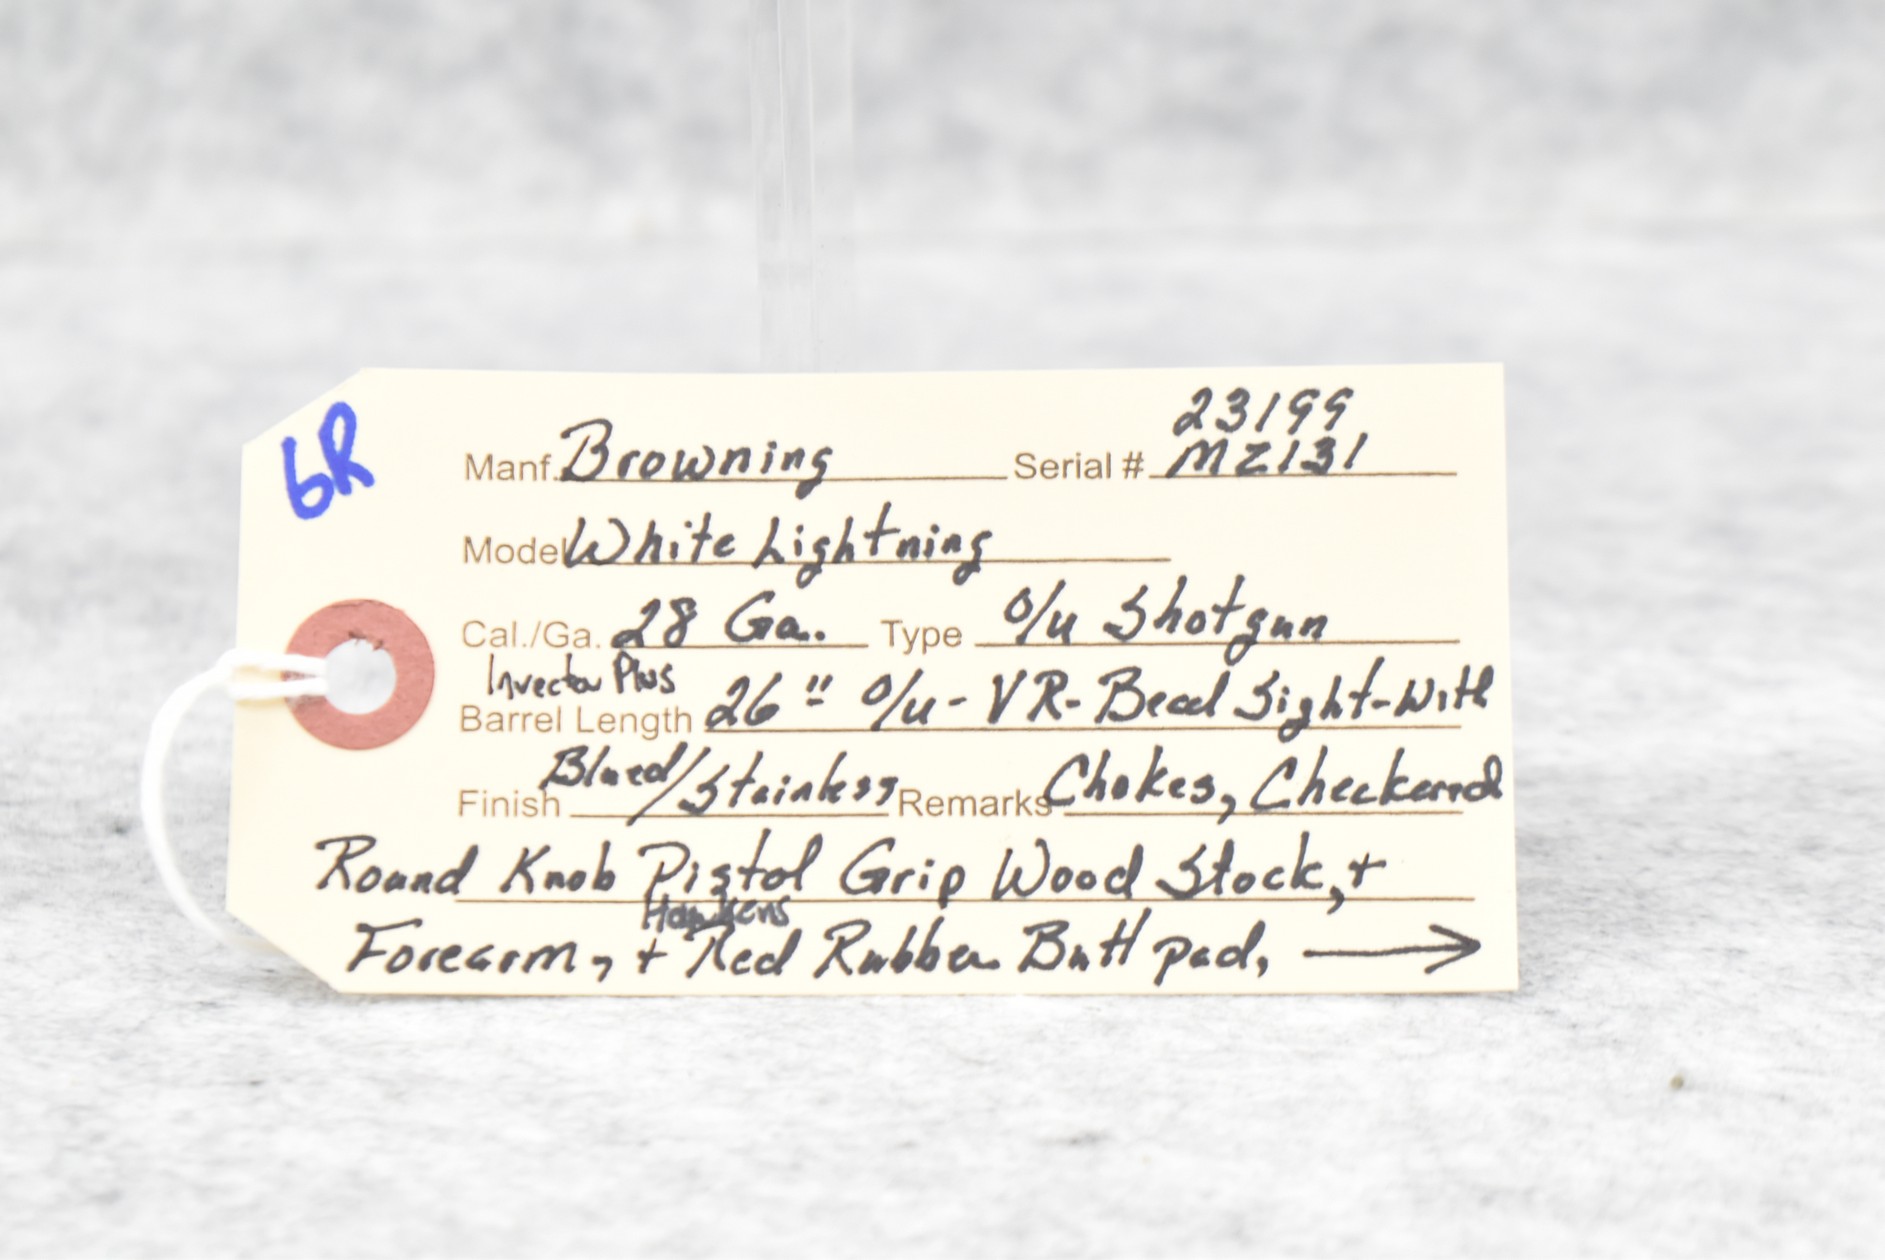 6R
23199
Manf. Browning Serial # MZ131
Model White Lightning
Cal./Ga. 28 Ga.. Type O/U Shotgun
Invector Plus
Barrel Length 26" O/U - VR - Bead Sight - With
Finish Blued/Stainless Remarks Chokes, Checkered
Round Knob Pistol Grip Wood Stock, +
Hawkens
Forearm, + Red Rubber Butt pad, →